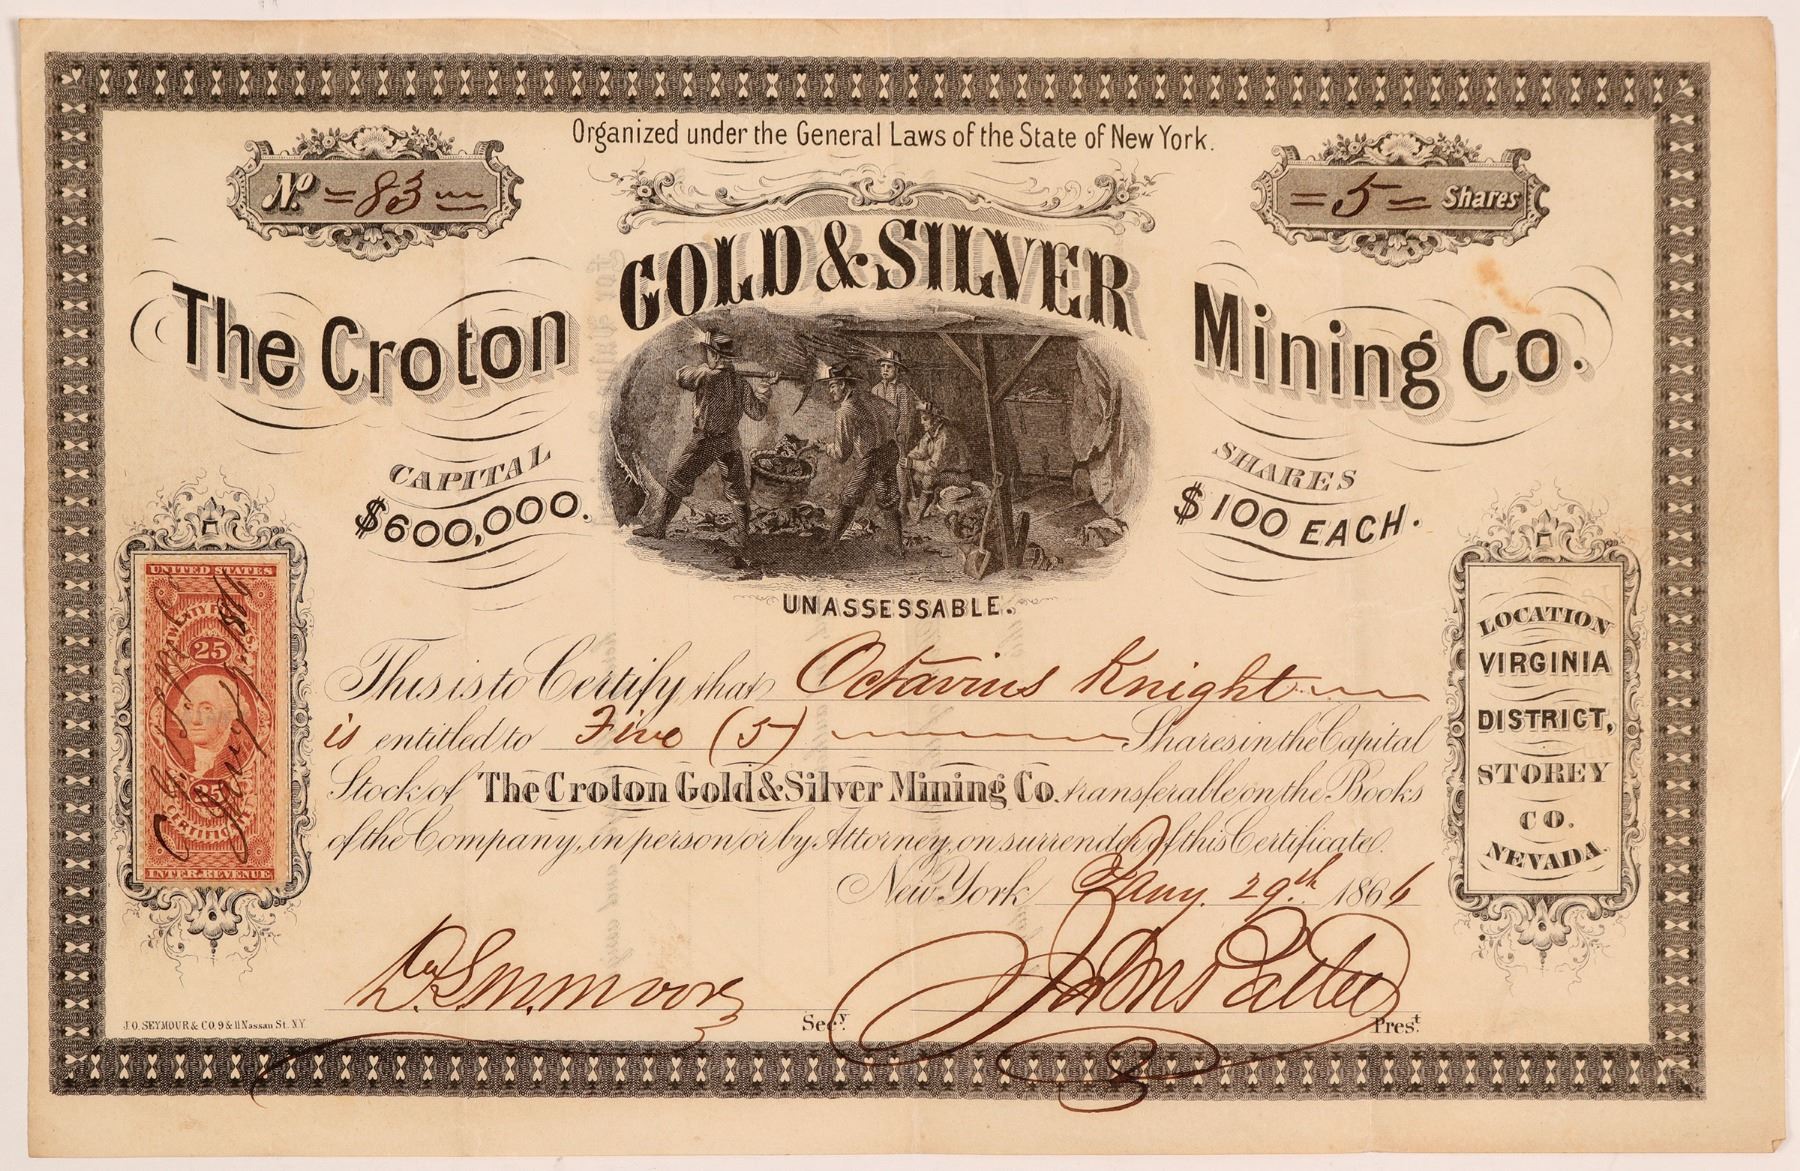 Organized under the General Laws of the State of New York.
No. = 83 =
= 5 = Shares
The Croton GOLD & SILVER Mining Co.
CAPITAL
$600,000.
SHARES
$100 EACH.
UNASSESSABLE.
This is to Certify that Octavius Knight
is entitled to Five (5) Shares in the Capital
Stock of The Croton Gold & Silver Mining Co. transferable on the Books
of the Company, in person or by Attorney, on surrender of this Certificate.
New York Jany. 29th 1866
Secy.
Prest.
J.O. SEYMOUR & CO. 9 & 11 Nassau St. N.Y.
UNITED STATES
25
25
CERTIFICATE
INTER. REVENUE
LOCATION
VIRGINIA
DISTRICT,
STOREY
CO.
NEVADA.